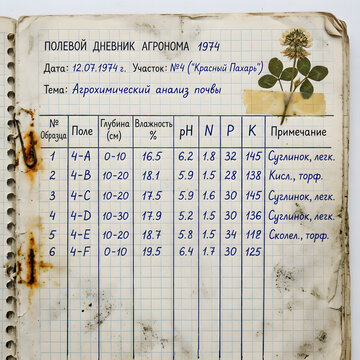 ПОЛЕВОЙ ДНЕВНИК АГРОНОМА 1974
Дата: 12.07.1974 г. Участок: №4 ("Красный Пахарь")
Тема: Агрохимический анализ почвы
№ Образца Поле Глубина (см) Влажность % pH N P K Примечание
1 4-А 0-10 16.5 6.2 1.8 32 145 Суглинок, легк.
2 4-В 10-20 18.1 5.9 1.5 28 138 Кисл., торф.
3 4-С 10-20 17.5 5.9 1.6 30 145 Суглинок, легк.
4 4-D 10-30 17.9 5.2 1.5 30 136 Суглинок, легк.
5 4-Е 10-20 18.7 5.8 1.5 34 112 Сколел., торф.
6 4-F 0-10 19.5 6.4 1.7 30 125